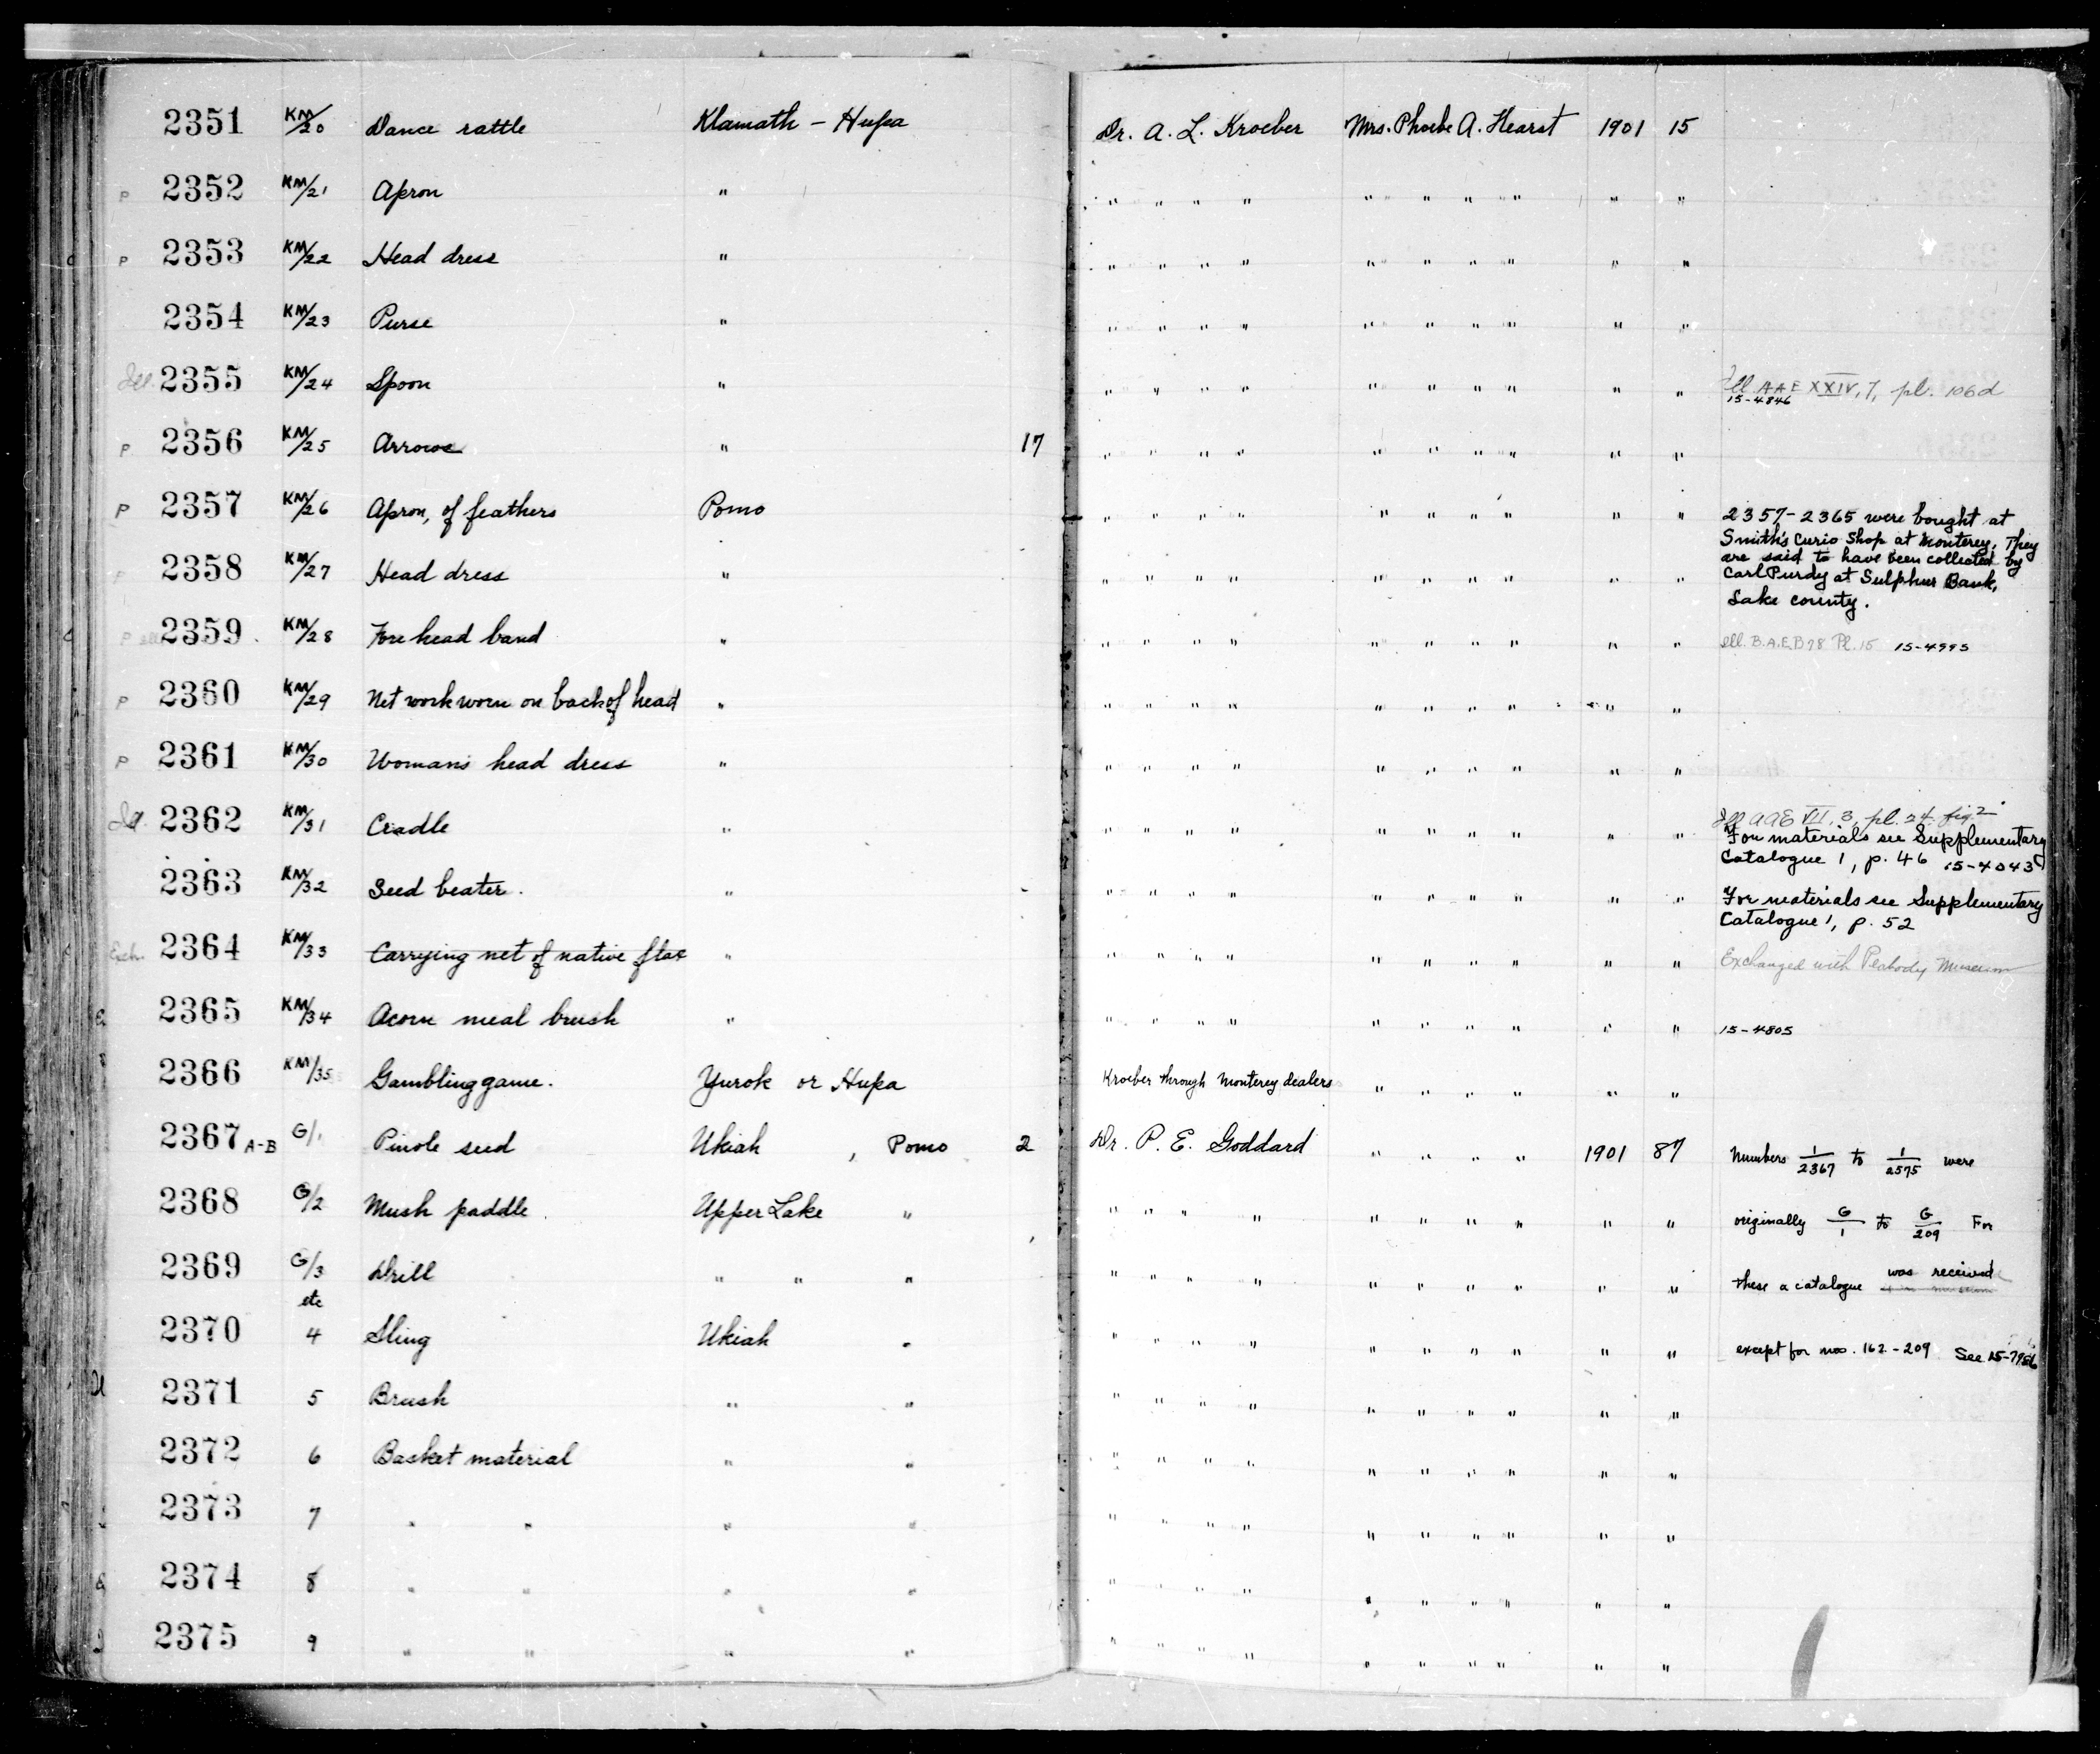 2351 KM/20 Dance rattle Klamath - Hupa Dr. A. L. Kroeber Mrs. Phoebe A. Hearst 1901 15
P 2352 KM/21 Apron " " " " " " " " " " "
P 2353 KM/22 Head dress " " " " " " " " " " "
2354 KM/23 Purse " " " " " " " " " " "
Ill. 2355 KM/24 Spoon " " " " " " " " " " " Ill. AAE XXIV, 7, pl. 106d
15-4846
P 2356 KM/25 Arrows " 17 " " " " " " " " " "
P 2357 KM/26 Apron, of feathers Pomo " " " " " " " " " " 2357-2365 were bought at
Smith's Curio Shop at Monterey. They
are said to have been collected by
2358 KM/27 Head dress " " " " " " " " " " " Carl Purdy at Sulphur Bank,
Lake county.
P Ill 2359 KM/28 Fore head band " " " " " " " " " " " Ill. B.A.E.B 78 Pl. 15 15-4993
P 2360 KM/29 Net work worn on back of head " " " " " " " " " " "
P 2361 KM/30 Womans head dress " " " " " " " " " " "
Ill AAE VII, 3, pl. 24 fig 2
Ill. 2362 KM/31 Cradle " " " " " " " " " " " For materials see Supplementary
Catalogue 1, p. 46 15-4043
2363 KM/32 Seed beater. " " " " " " " " " " " For materials see Supplementary
Catalogue 1, p. 52
Exch. 2364 KM/33 Carrying net of native flax " " " " " " " " " " " Exchanged with Peabody Museum
2365 KM/34 Acorn meal brush " " " " " " " " " " " 15-4805
2366 KM/35 Gambling game. Yurok or Hupa Kroeber through Monterey dealers " " " " " "
2367 A-B G/1 Pinole seed Ukiah , Pomo 2 Dr. P. E. Goddard " " " " 1901 87 Numbers 1/2367 to 1/2575 were
2368 G/2 Mush paddle. Upper Lake " " " " " " " " " " " originally G/1 to G/209 For
2369 G/3 Drill " " " " " " " " " " " " " these a catalogue was received
etc
2370 4 Sling Ukiah " " " " " " " " " " " except for nos. 162-209 See 15-7956
2371 5 Brush " " " " " " " " " " " "
2372 6 Basket material " " " " " " " " " " " "
2373 7 " " " " " " " " " " " " " "
2374 8 " " " " " " " " " " " " " "
2375 9 " " " " " " " " " " " " " "